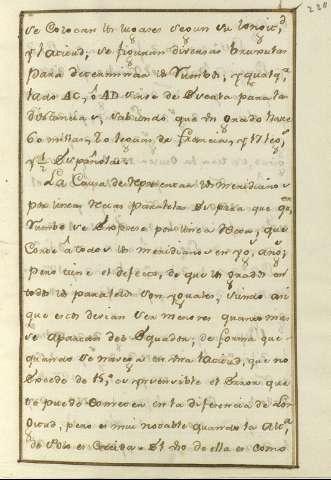 220
se colocan los lugares segun su longit.d
y latitud, se figuran diversas brujulas
para determinar los rumbos, y qualq.a
lado AC, ô AD sirve de escala para la
distancia, sabiendo que un grado tiene
60 millas, 20 leguas de Francia, y 17 leg.s
y 1/2 Españolas.
La causa de representar los meridianos
por lineas rectas paralelas es para que el
rumbo se exprese por linea recta, que
corte â todos los meridianos en yg.s ang.s
pero tiene el defecto, de que los grados en
todos los paralelos son yguales, siendo asi
que estos devian ser menores quanto mas
se apartan del Equador, de forma que
quando se navega en una latitud, que no
excede de 15.o es insensible el error que
se puede cometer en la diferencia de lon
gitud, pero es mui notable quando la alt.a
de Polo es crecida. El uso de ella es como